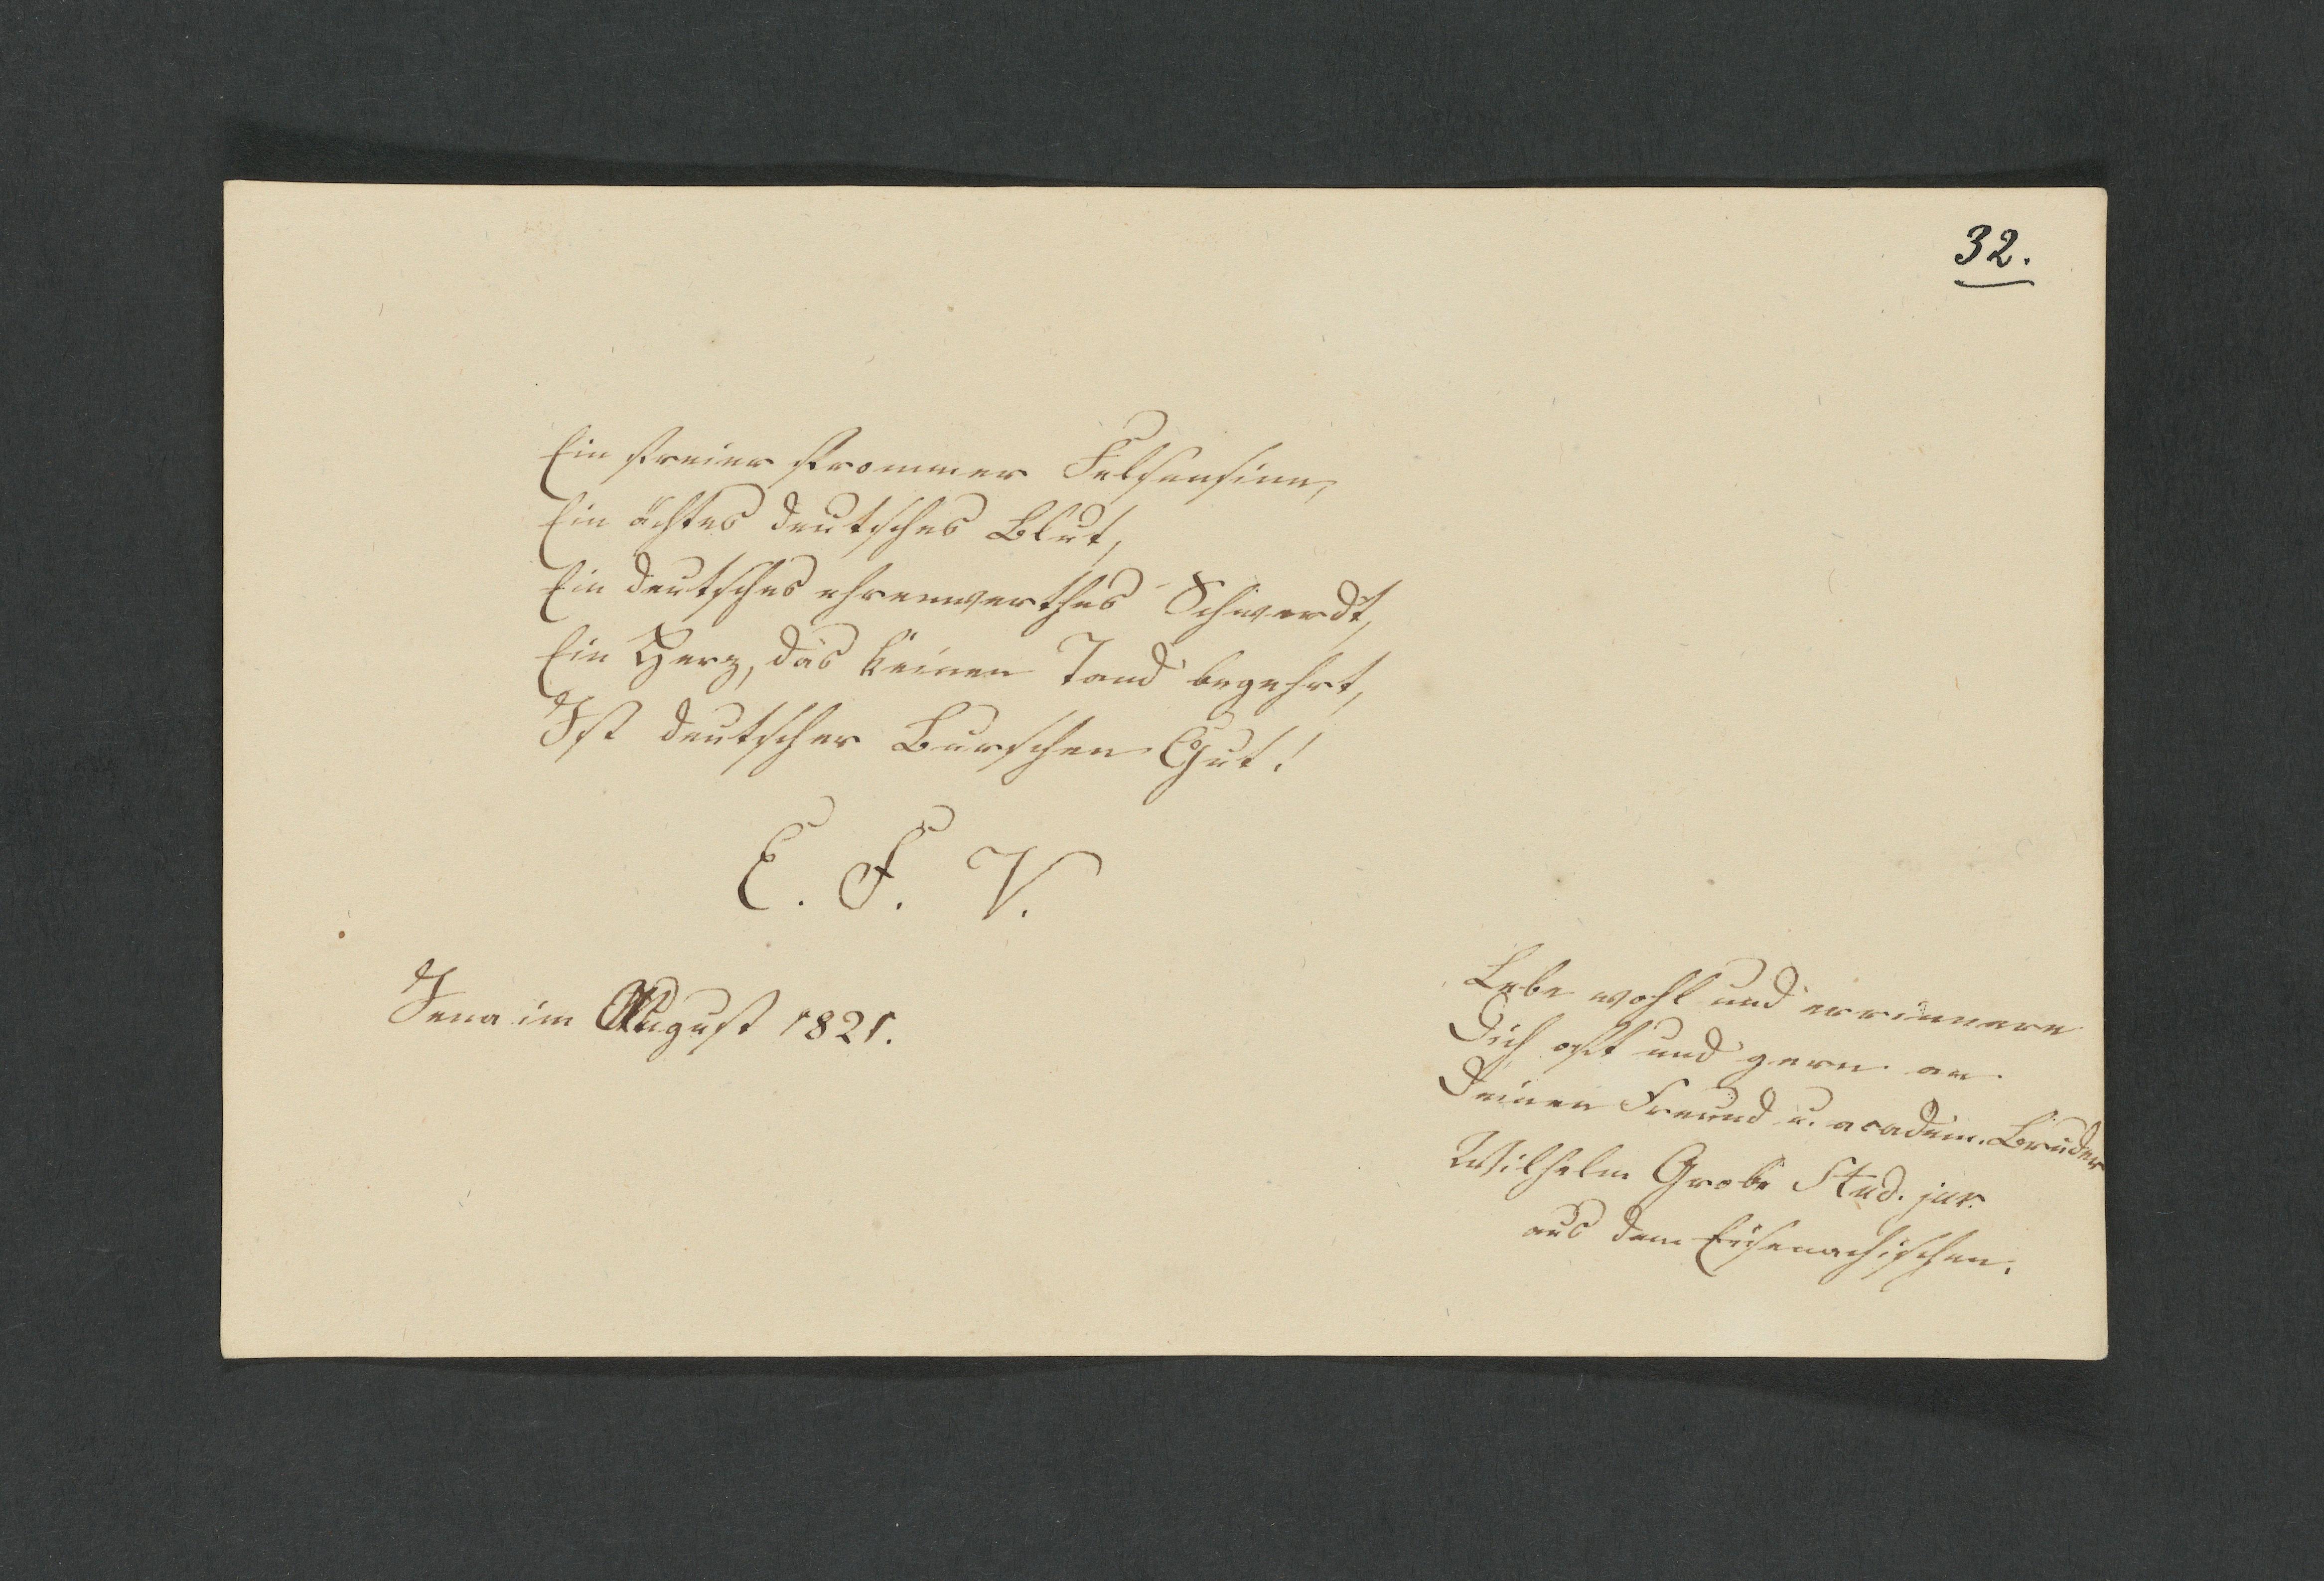 32.
Ein freier frommer Felsensinn,
Ein ächtes deutsches Blut,
Ein deutsches ehrenwerthes Schwerdt,
Ein Herz, das keinen Tand begehrt,
Ist deutscher Burschen Gut!
E. F. V.
Jena im August 1821.
Lebe wohl und errinnere
Dich oft und gern an
Deinen Freund u. academ. Bruder
Wilhelm Grobe Stud. jur.
aus dem Eisenachischen.